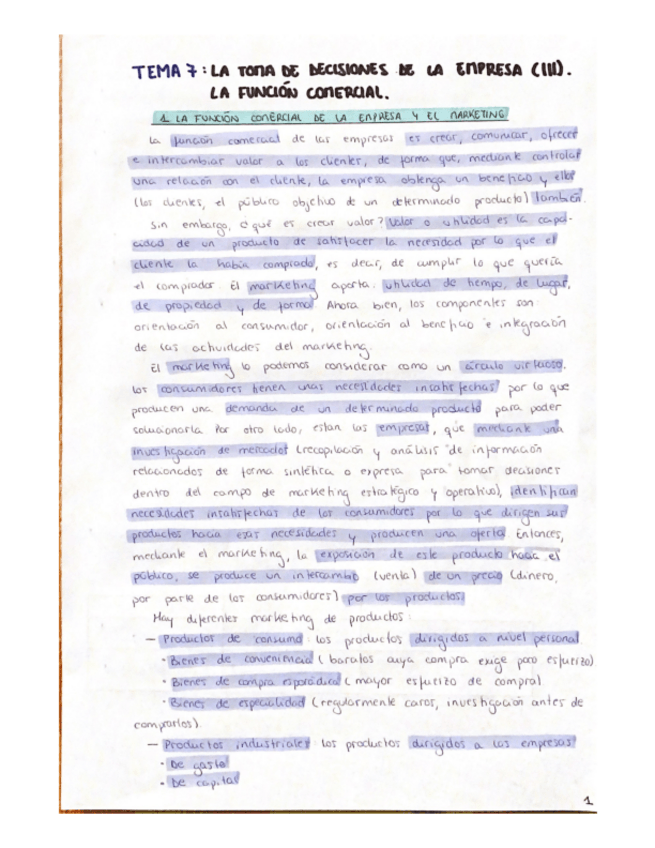 TEMA 7: LA TOMA DE DECISIONES DE LA EMPRESA (III).
LA FUNCIÓN COMERCIAL.
1. LA FUNCIÓN COMERCIAL DE LA EMPRESA Y EL MARKETING
La función comercial de las empresas es crear, comunicar, ofrecer
e intercambiar valor a los clientes, de forma que, mediante controlar
una relación con el cliente, la empresa obtenga un beneficio y ellos
(los clientes, el público objetivo de un determinado producto) también.
Sin embargo, ¿qué es crear valor? Valor o utilidad es la capa-
cidad de un producto de satisfacer la necesidad por lo que el
cliente la había comprado, es decir, de cumplir lo que quería
el comprador. El marketing aporta: utilidad de tiempo, de lugar,
de propiedad y de forma. Ahora bien, los componentes son:
orientación al consumidor, orientación al beneficio e integración
de las actividades del marketing.
El marketing lo podemos considerar como un círculo virtuoso.
Los consumidores tienen unas necesidades insatisfechas por lo que
producen una demanda de un determinado producto para poder
solucionarla. Por otro lado, estan las empresas, que mediante una
investigación de mercados (recopilación y análisis de información
relacionados de forma sintética o expresa para tomar decisiones
dentro del campo de marketing estratégico y operativo), identifican
necesidades insatisfechas de los consumidores por lo que dirigen sus
productos hacia esas necesidades y producen una oferta. Entonces,
mediante el marketing, la exposición de este producto hacia el
público, se produce un intercambio (venta) de un precio (dinero,
por parte de los consumidores) por los productos.
Hay diferentes marketing de productos:
— Productos de consumo: los productos dirigidos a nivel personal
· Bienes de conveniencia (baratos cuya compra exige poco esfuerzo)
· Bienes de compra esporádica (mayor esfuerzo de compra)
· Bienes de especialidad (regularmente caros, investigación antes de
comprarlos).
— Productos industriales: los productos dirigidos a las empresas
· De gasto
· De capital
1